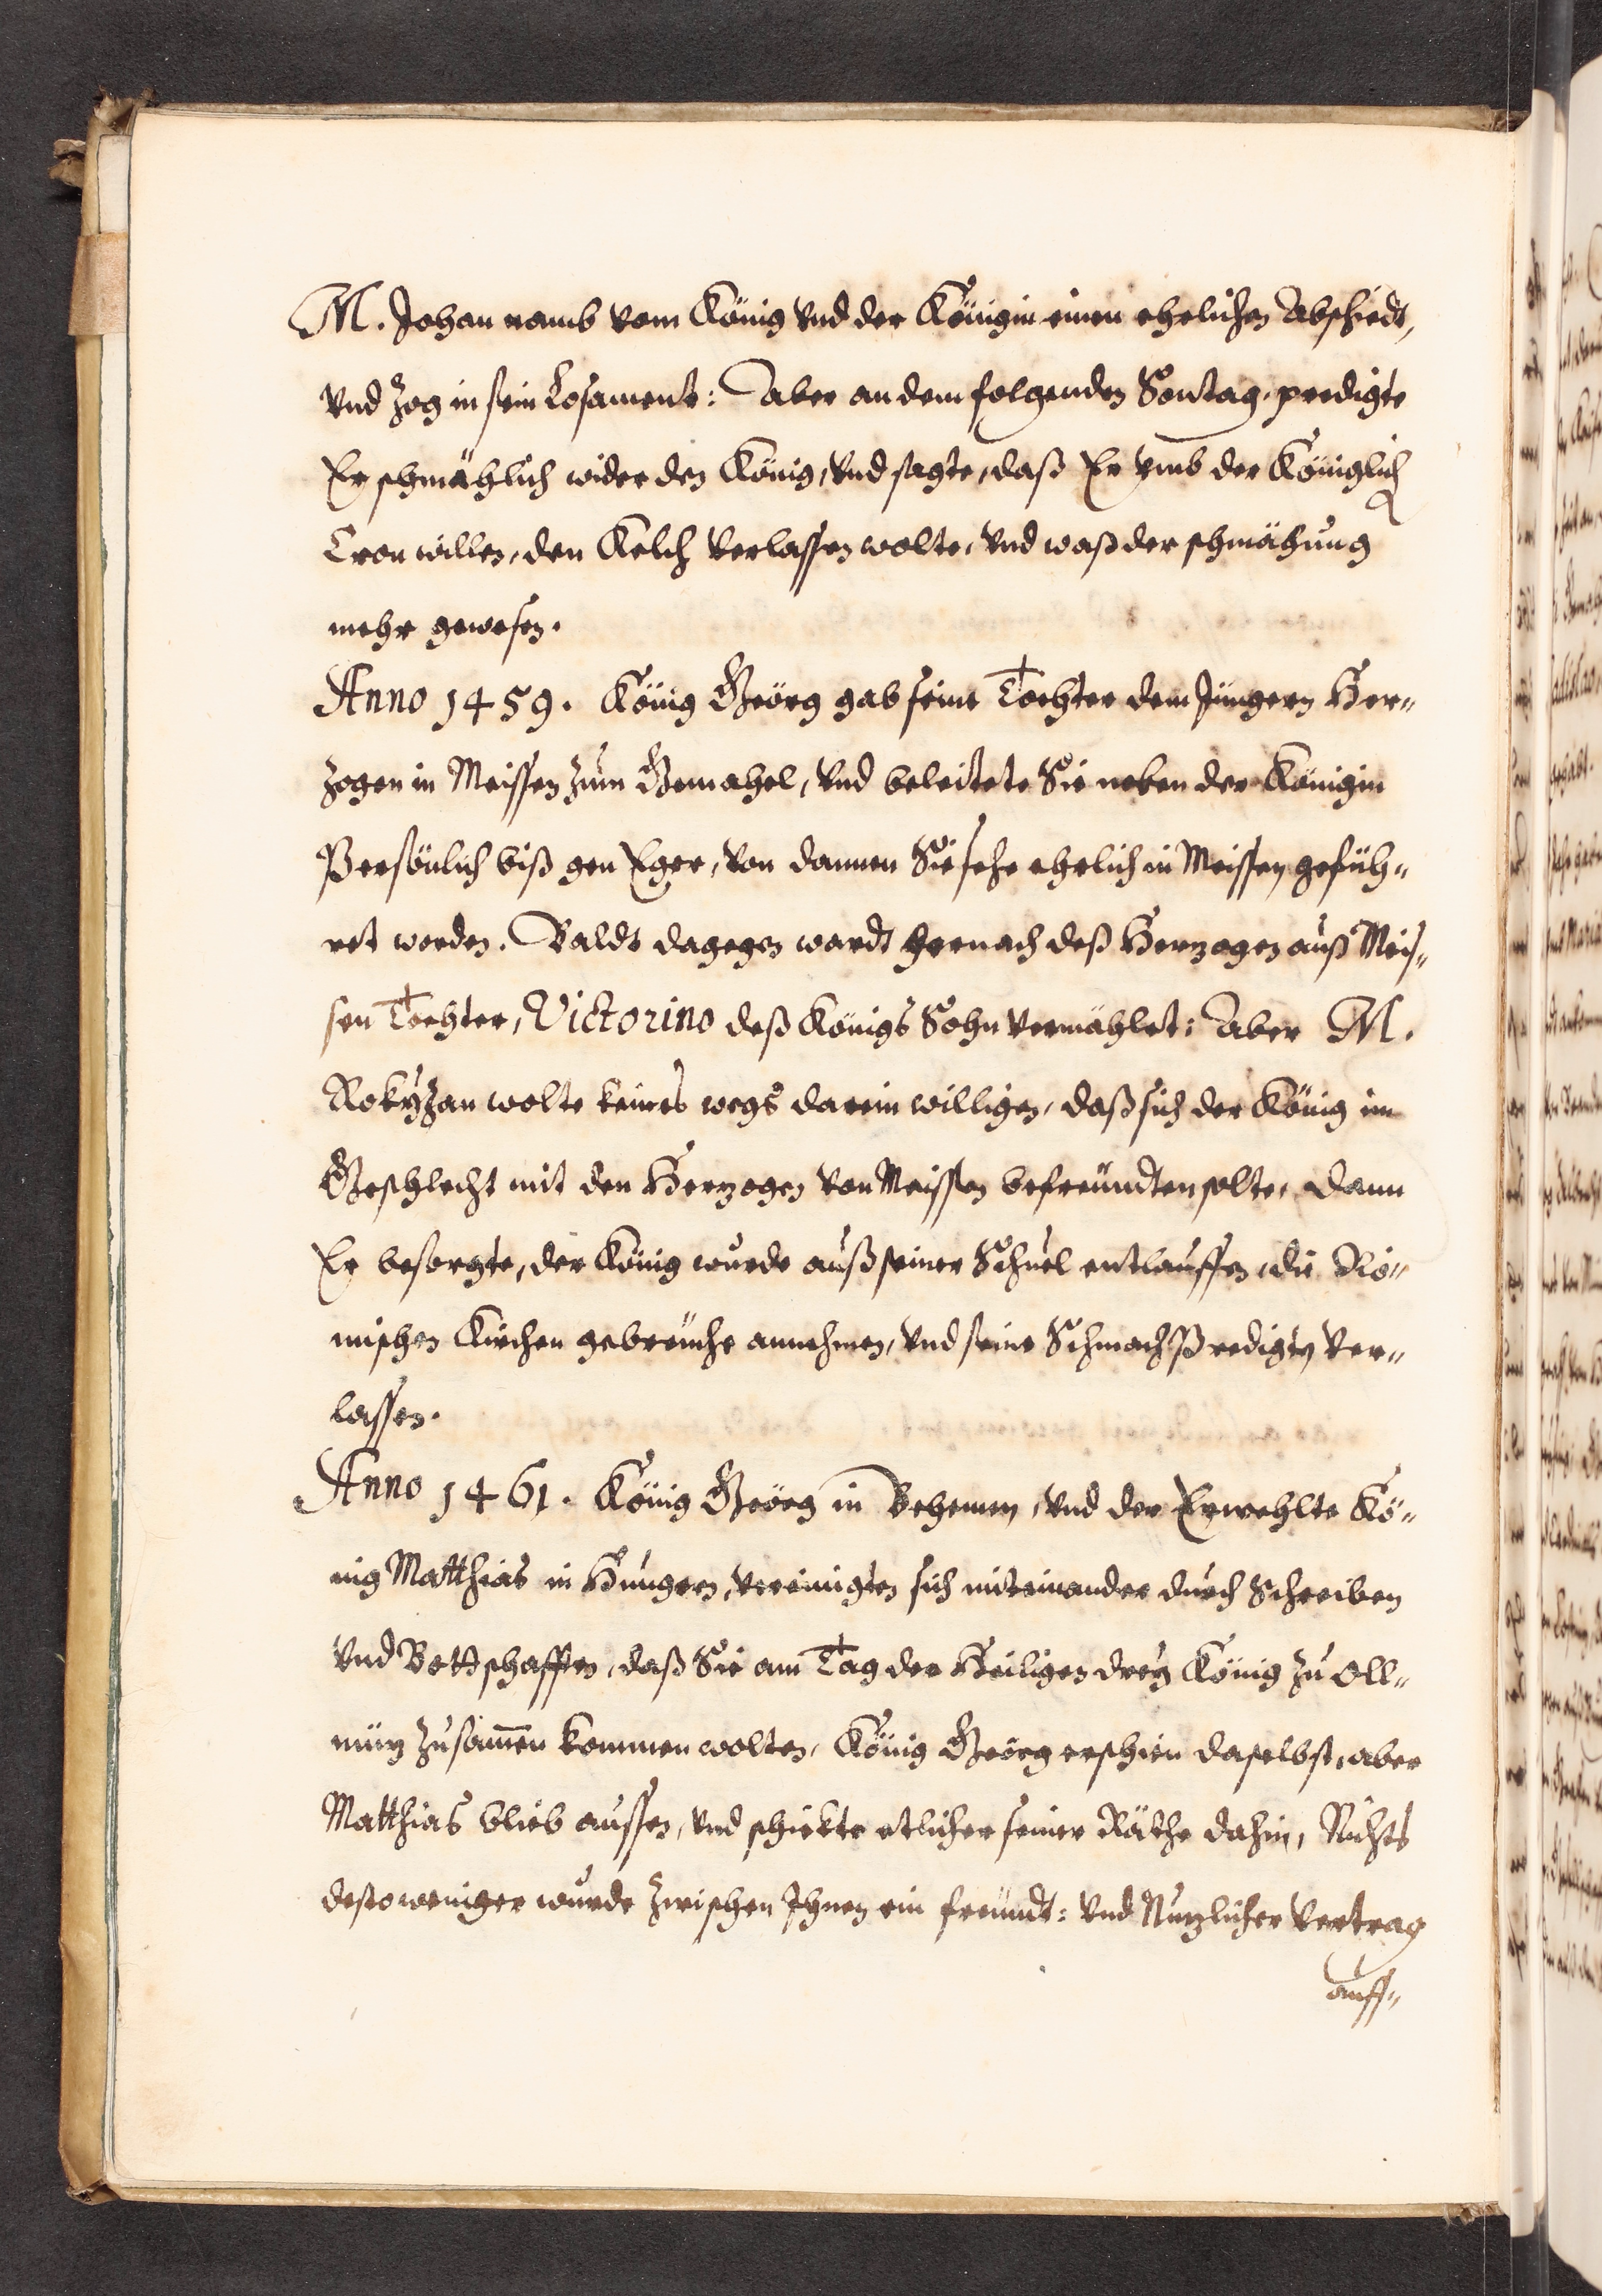 M. Johan namb vom König vnd der Königin einen ehrlichen Abschiedt,
vnd zog in sein Losament: Aber an dem folgenden Sontag, predigte
Er schmählich wider den König, vnd sagte, daß Er vmb der Königlich
Cron willen, den Kelch verlassen wolte, vnd waß der schmähung
mehr gewesen.
Anno 1459. König Geörg gab seine Tochter dem Jüngern Her„
zogen in Meissen zum Gemahel, vnd beleitete Sie neben der Königin
Persönlich biß gen Eger, von dannen Sie sehr ehrlich in Meissen gefüh„
ret worden. Baldt dagegen wardt hernach deß Herzogen auß Meis„
sen Tochter, Victorino deß Königs Sohn vermählet: Aber M.
Rokyzan wolte keines wegs darein willigen, daß sich der König im
Geschlecht mit den Herzogen von Meissen befreundten solte, dann
Er besorgte, der König wurde auß seiner Schuel entlauffen, die Rö„
mischen Kirchen gebreuche annehmen, vnd seine Schmach Predigten ver„
lassen.
Anno 1461. König Geörg in Behemen, vnd der Erwehlte Kö„
nig Matthias in Hungern, vereinigten sich miteinander durch Schreiben
vnd Bottschafften, daß Sie am Tag der Heiligen drey König zu Oll„
münz zusam̄en kommen wolten, König Geörg erschien daselbst, aber
Matthias blieb aussen, vnd schickte etlicher seiner Räthe dahin, Nichts
destoweniger wurde zwischen Ihnen ein freundt: vnd Nuzlicher Vertrag
auff„